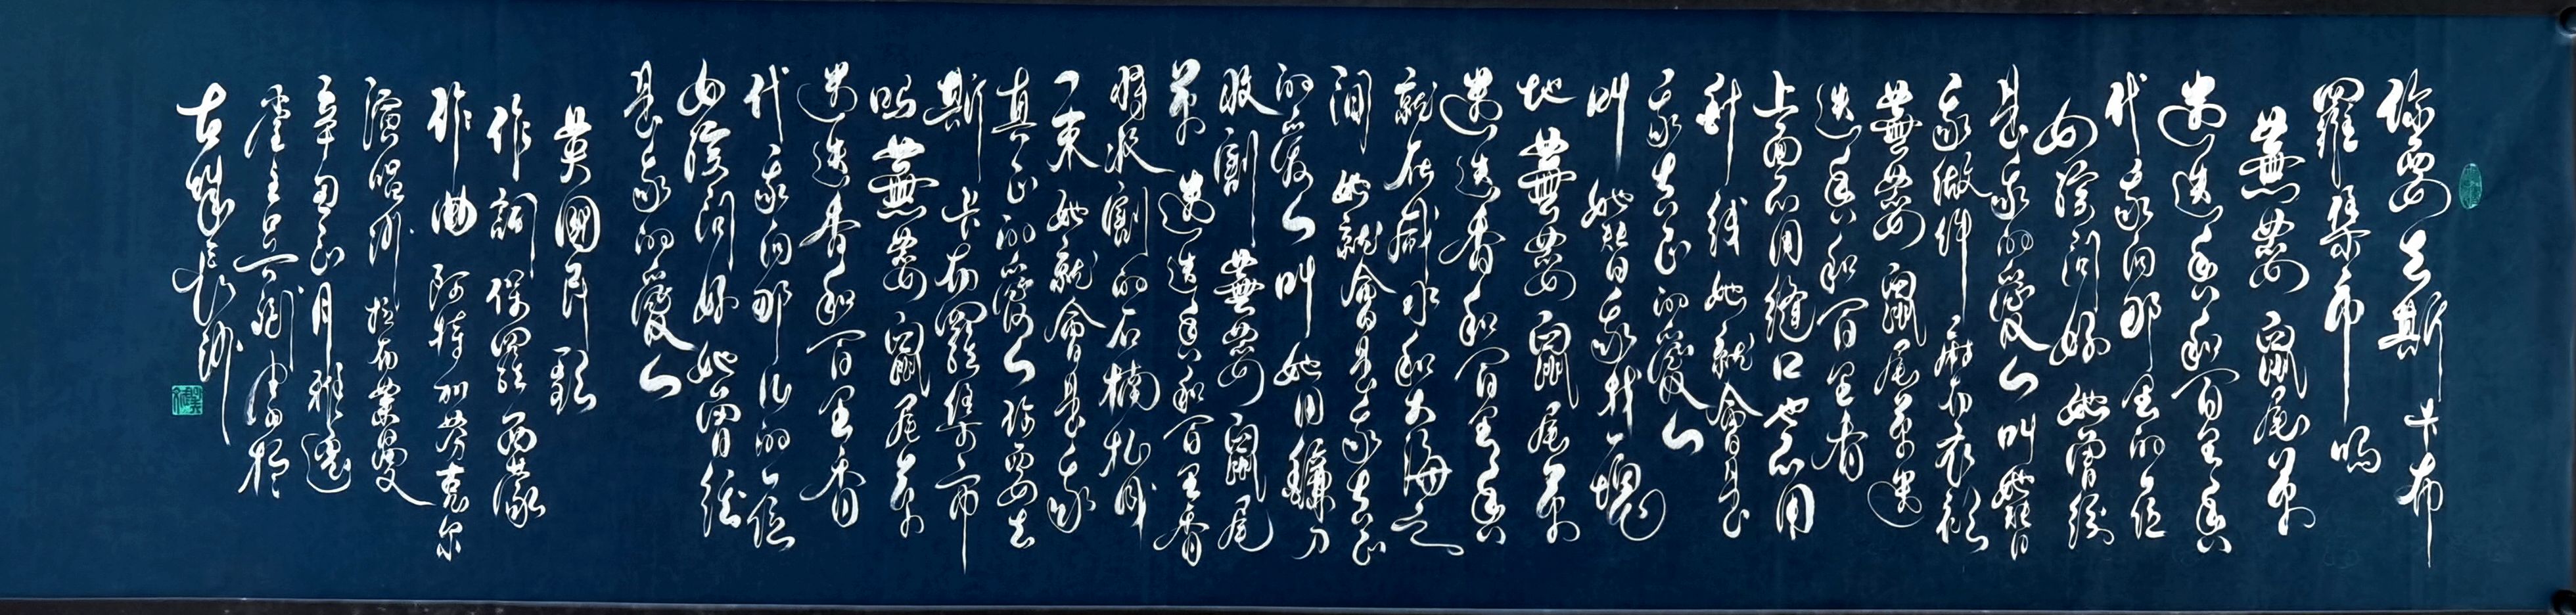 你要去斯卡布
羅集市嗎
蕪荽鼠尾草
迷迭香和百里香
代我向那里的一位
女孩问好她曾經
是我的愛人叫她替
我做件麻布衣衫
蕪荽鼠尾草迷
迭香和百里香
上面不用縫口也不用
針线她就會是
我真正的愛人
叫她替我找一塊
地蕪荽鼠尾草
迷迭香和百里香
就在咸水和大海之
间她就會是我真正
的愛人叫她用鐮刀
收割蕪荽鼠尾
草迷迭香和百里香
將收割的石楠扎成
一束她就會是我
真正的愛人你要去
斯卡布羅集市
嗎蕪荽鼠尾草
迷迭香和百里香
代我向那儿的一位
女孩问好她曾經
是我的愛人
英國民歌
作詞保羅西蒙
作曲阿特加芬克尔
演唱莎拉布莱曼
辛丑正月雅逸
堂主書於
古城長沙